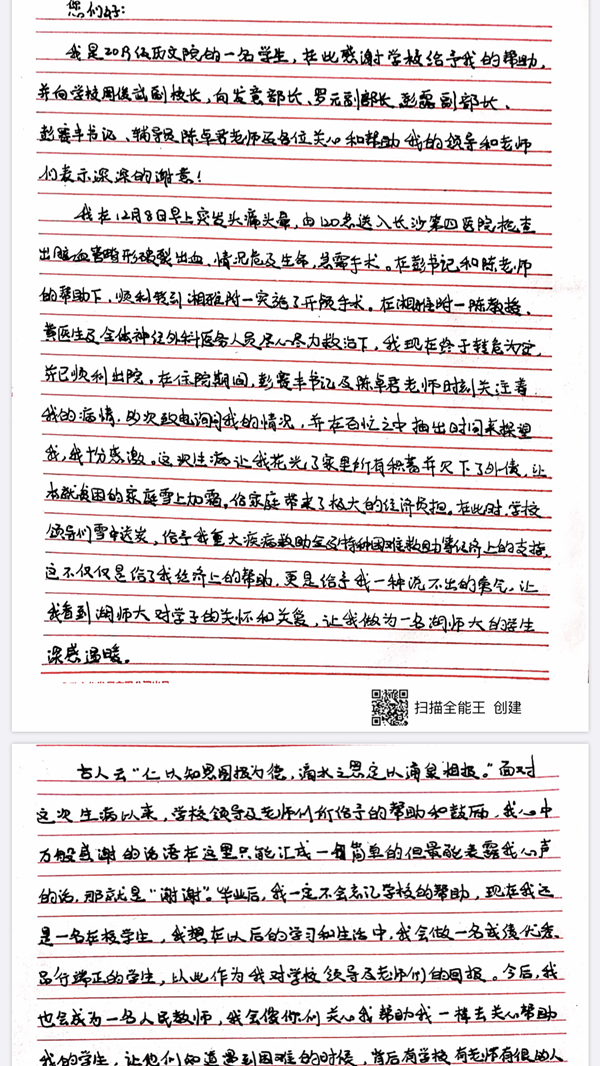 您们好:
我是20历文院的一名学生,在此感谢学校给予我的帮助,
并向学校周俊武副校长,向发意部长、罗元副部长、彭露副部长、
彭赛丰书记、辅导员陈卓君老师及各位关心和帮助我的领导和老师
们表示深深的谢意!
我在12月8日早上突发头痛头晕,由120急送入长沙第四医院检查
出脑血管畸形破裂出血,情况危及生命,急需手术。在彭书记和陈老师
的帮助下,顺利转到湘雅附一实施了开颅手术。在湘雅附一陈教授、
黄医生及全体神经外科医务人员尽心尽力救治下,我现在终于转危为安,
并已顺利出院。在住院期间,彭赛丰书记及陈卓君老师时刻关注着
我的病情,多次致电询问我的情况,并在百忙之中抽出时间来探望
我,我十分感激。这次生病让我花光了家里所有积蓄并欠下了外债,让
本就贫困的家庭雪上加霜。给家庭带来了极大的经济负担。在此时,学校
领导们雪中送炭,给予我重大疾病救助金及特种困难救助等经济上的支持,
这不仅仅是给了我经济上的帮助,更是给予我一种说不出的勇气,让
我看到湖师大对学子的关怀和关爱,让我做为一名湖师大的学生
深感温暖。
扫描全能王 创建
古人云“仁以知恩图报为德,滴水之恩定以涌泉相报。”面对
这次生病以来,学校领导及老师们所给予的帮助和鼓励,我心中
万般感谢的话语在这里只能汇成一句简单的但最能表露我心声
的话,那就是“谢谢”。毕业后,我一定不会忘记学校的帮助,现在我还
是一名在校学生,我想在以后的学习和生活中,我会做一名成绩优秀、
品行端正的学生,以此作为我对学校领导及老师们的回报。今后,我
也会成为一名人民教师,我会像你们关心我帮助我一样去关心帮助
我的学生,让他们知道遇到困难的时候,背后有学校有老师有很多人